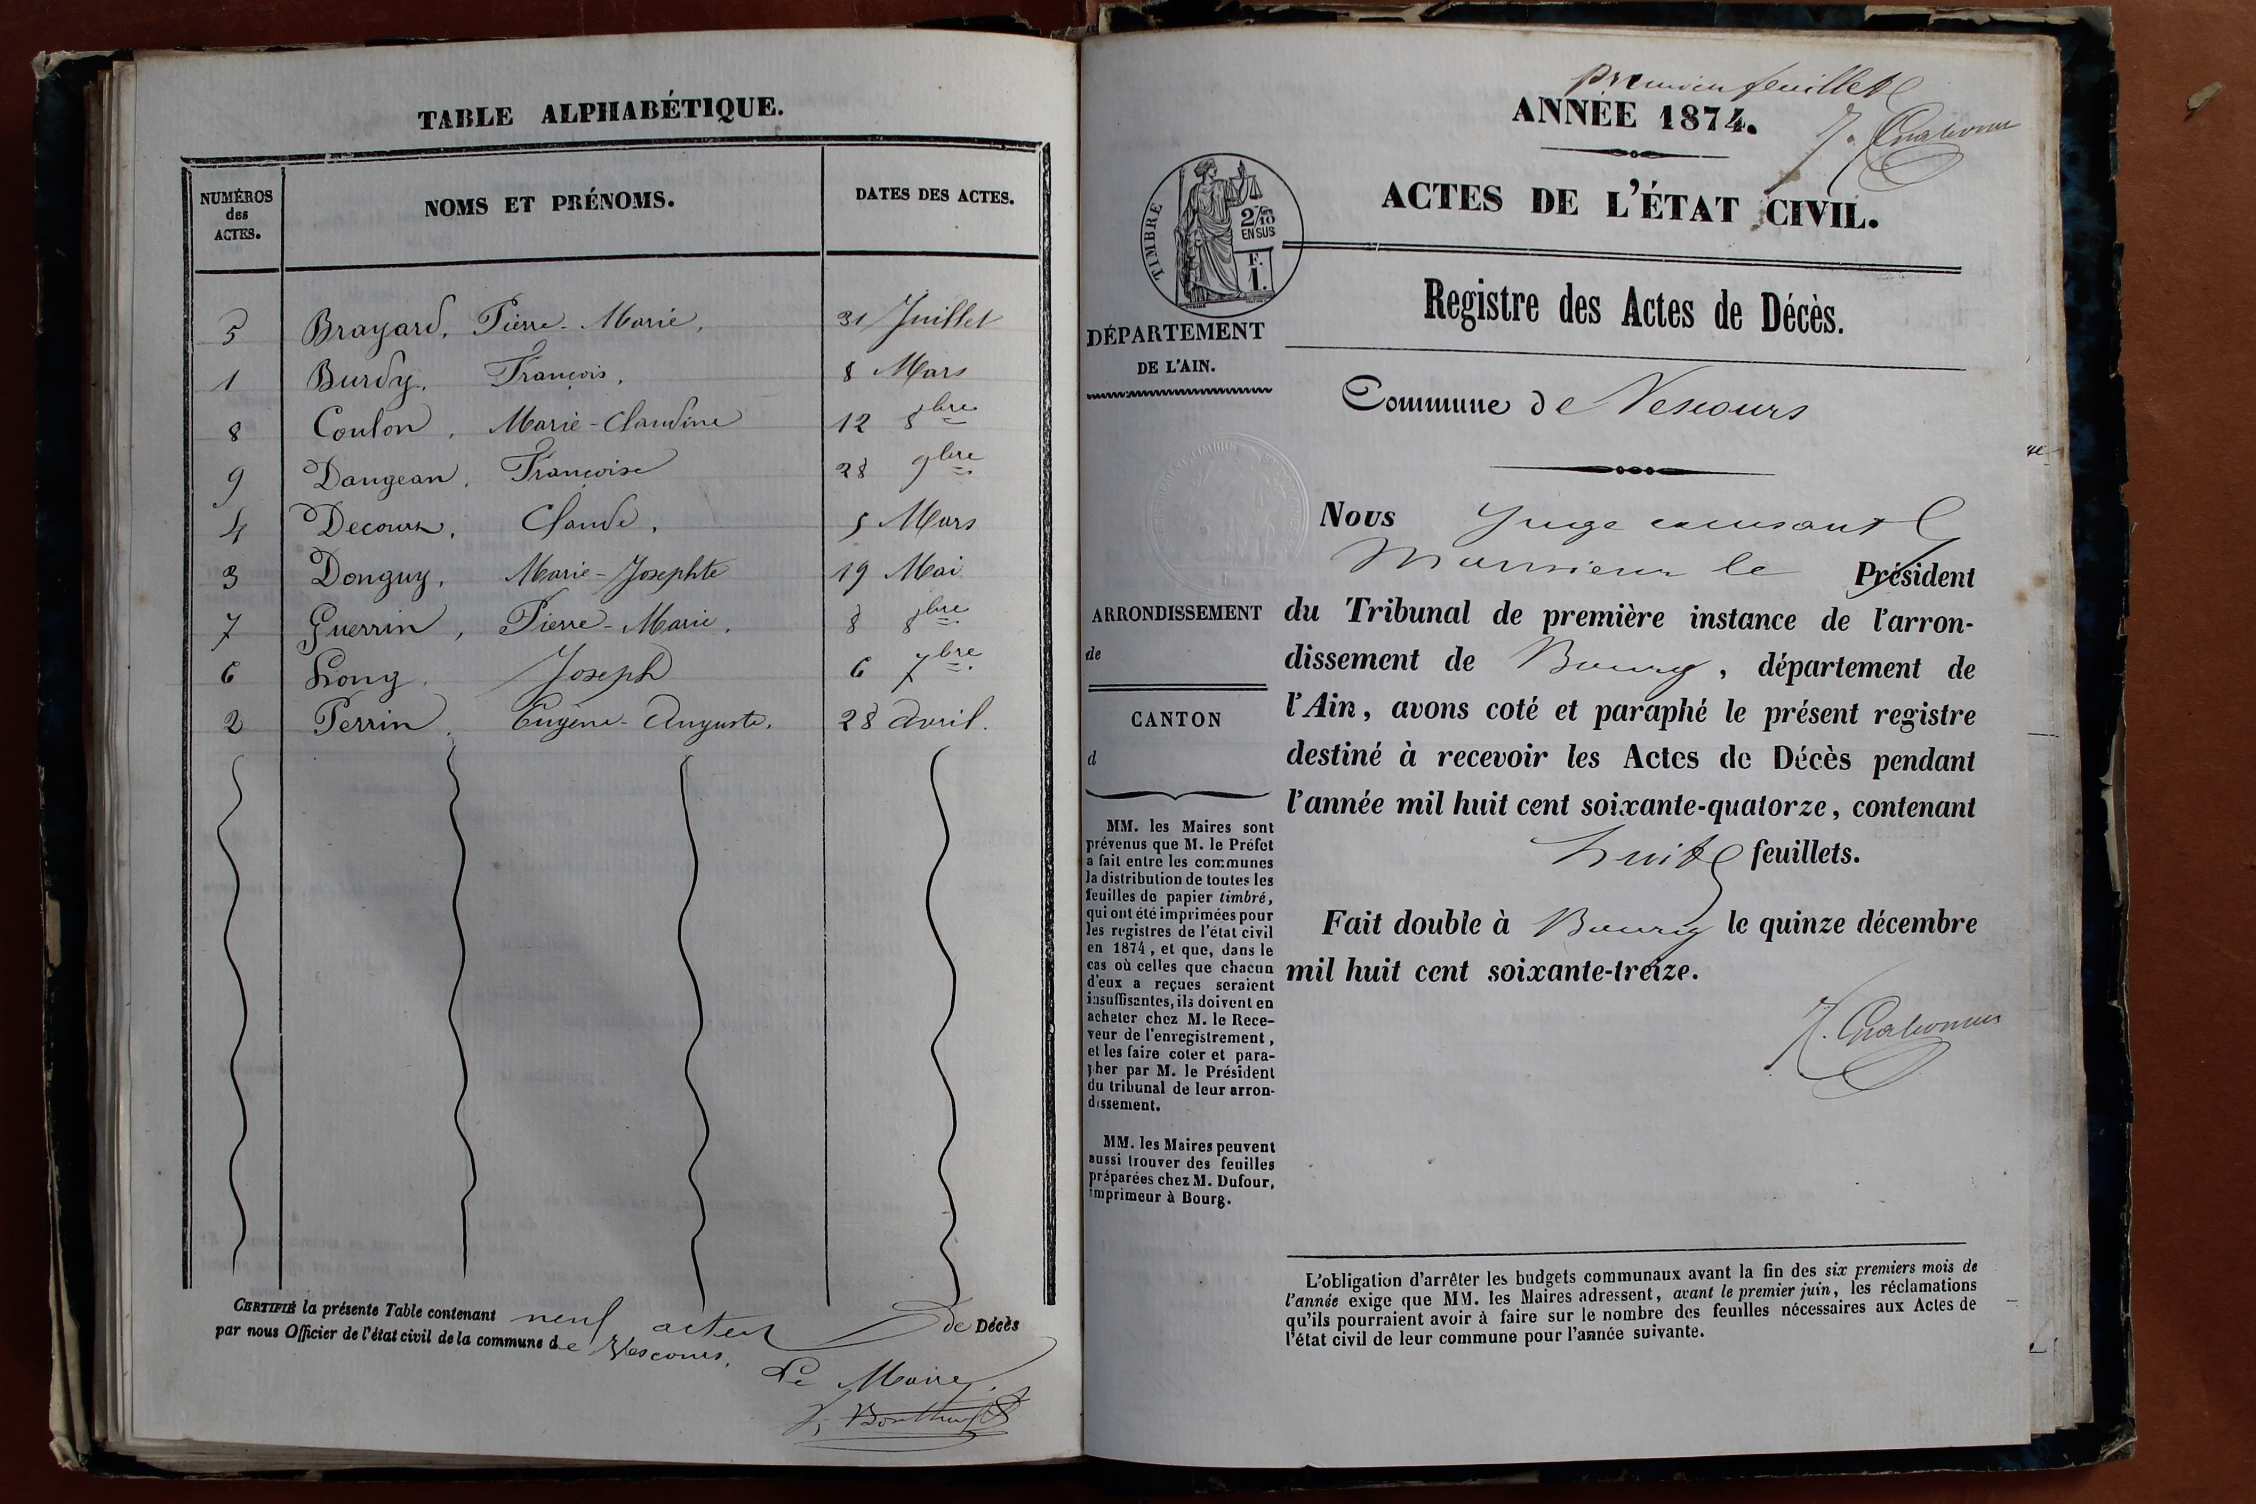 TABLE ALPHABÉTIQUE.
NUMÉROS des ACTES.
NOMS ET PRÉNOMS.
DATES DES ACTES.
5 Brayard, Pierre-Marie, 31 Juillet
1 Burdy, François, 8 Mars
8 Coulon, Marie-Claudine 12 8bre
9 Dangean, Françoise 28 9bre
4 Decourt, Claude, 5 Mars
3 Donguy, Marie-Josephte 19 Mai
7 Guerrin, Pierre-Marie, 8 8bre
6 Long, Joseph 6 7bre
2 Perrin, Eugène-Auguste, 28 avril.
CERTIFIÉ la présente Table contenant neuf actes de Décès
par nous Officier de l'état civil de la commune de Vescours.
Le Maire,
premier feuillet
ANNÉE 1874.
ACTES DE L'ÉTAT CIVIL.
TIMBRE
2/10 EN SUS
F. 1.
Registre des Actes de Décès.
DÉPARTEMENT
DE L'AIN.
Commune de Vescours
Nous Juge
Monsieur le Président
ARRONDISSEMENT
de
CANTON
d
du Tribunal de première instance de l'arron-
dissement de Bourg, département de
l'Ain, avons coté et paraphé le présent registre
destiné à recevoir les Actes de Décès pendant
l'année mil huit cent soixante-quatorze, contenant
huit feuillets.
Fait double à Bourg le quinze décembre
mil huit cent soixante-treize.
MM. les Maires sont
prévenus que M. le Préfet
a fait entre les communes
la distribution de toutes les
feuilles de papier timbré,
qui ont été imprimées pour
les registres de l'état civil
en 1874, et que, dans le
cas où celles que chacun
d'eux a reçues seraient
insuffisantes, ils doivent en
acheter chez M. le Rece-
veur de l'enregistrement,
et les faire coter et para-
pher par M. le Président
du tribunal de leur arron-
dissement.
MM. les Maires peuvent
aussi trouver des feuilles
préparées chez M. Dufour,
imprimeur à Bourg.
L'obligation d'arrêter les budgets communaux avant la fin des six premiers mois de
l'année exige que MM. les Maires adressent, avant le premier juin, les réclamations
qu'ils pourraient avoir à faire sur le nombre des feuilles nécessaires aux Actes de
l'état civil de leur commune pour l'année suivante.